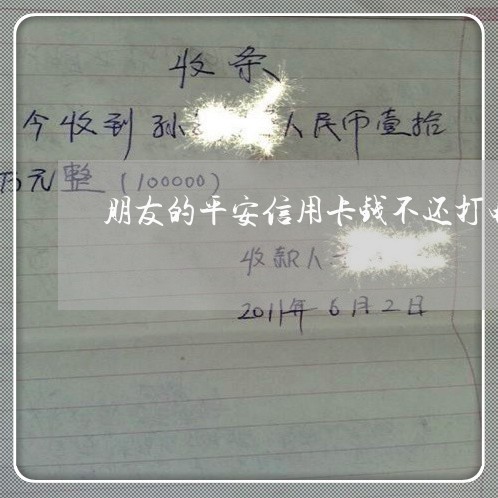 收条
今收到孙 人民币壹拾
万元整（100000）
朋友的平安信用卡钱不还打
收款人
2011年6月2日